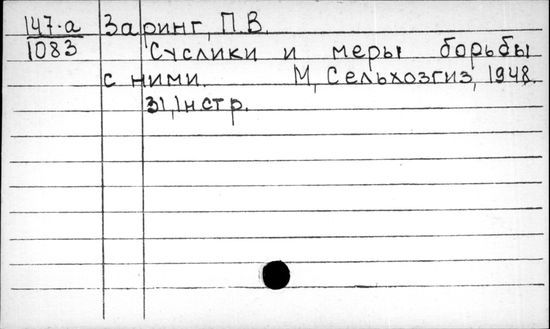 147-а Заринг, П.В.
1083 Суслики и меры борьбы
с ними. М, Сельхозгиз, 1948.
31, 1нстр.